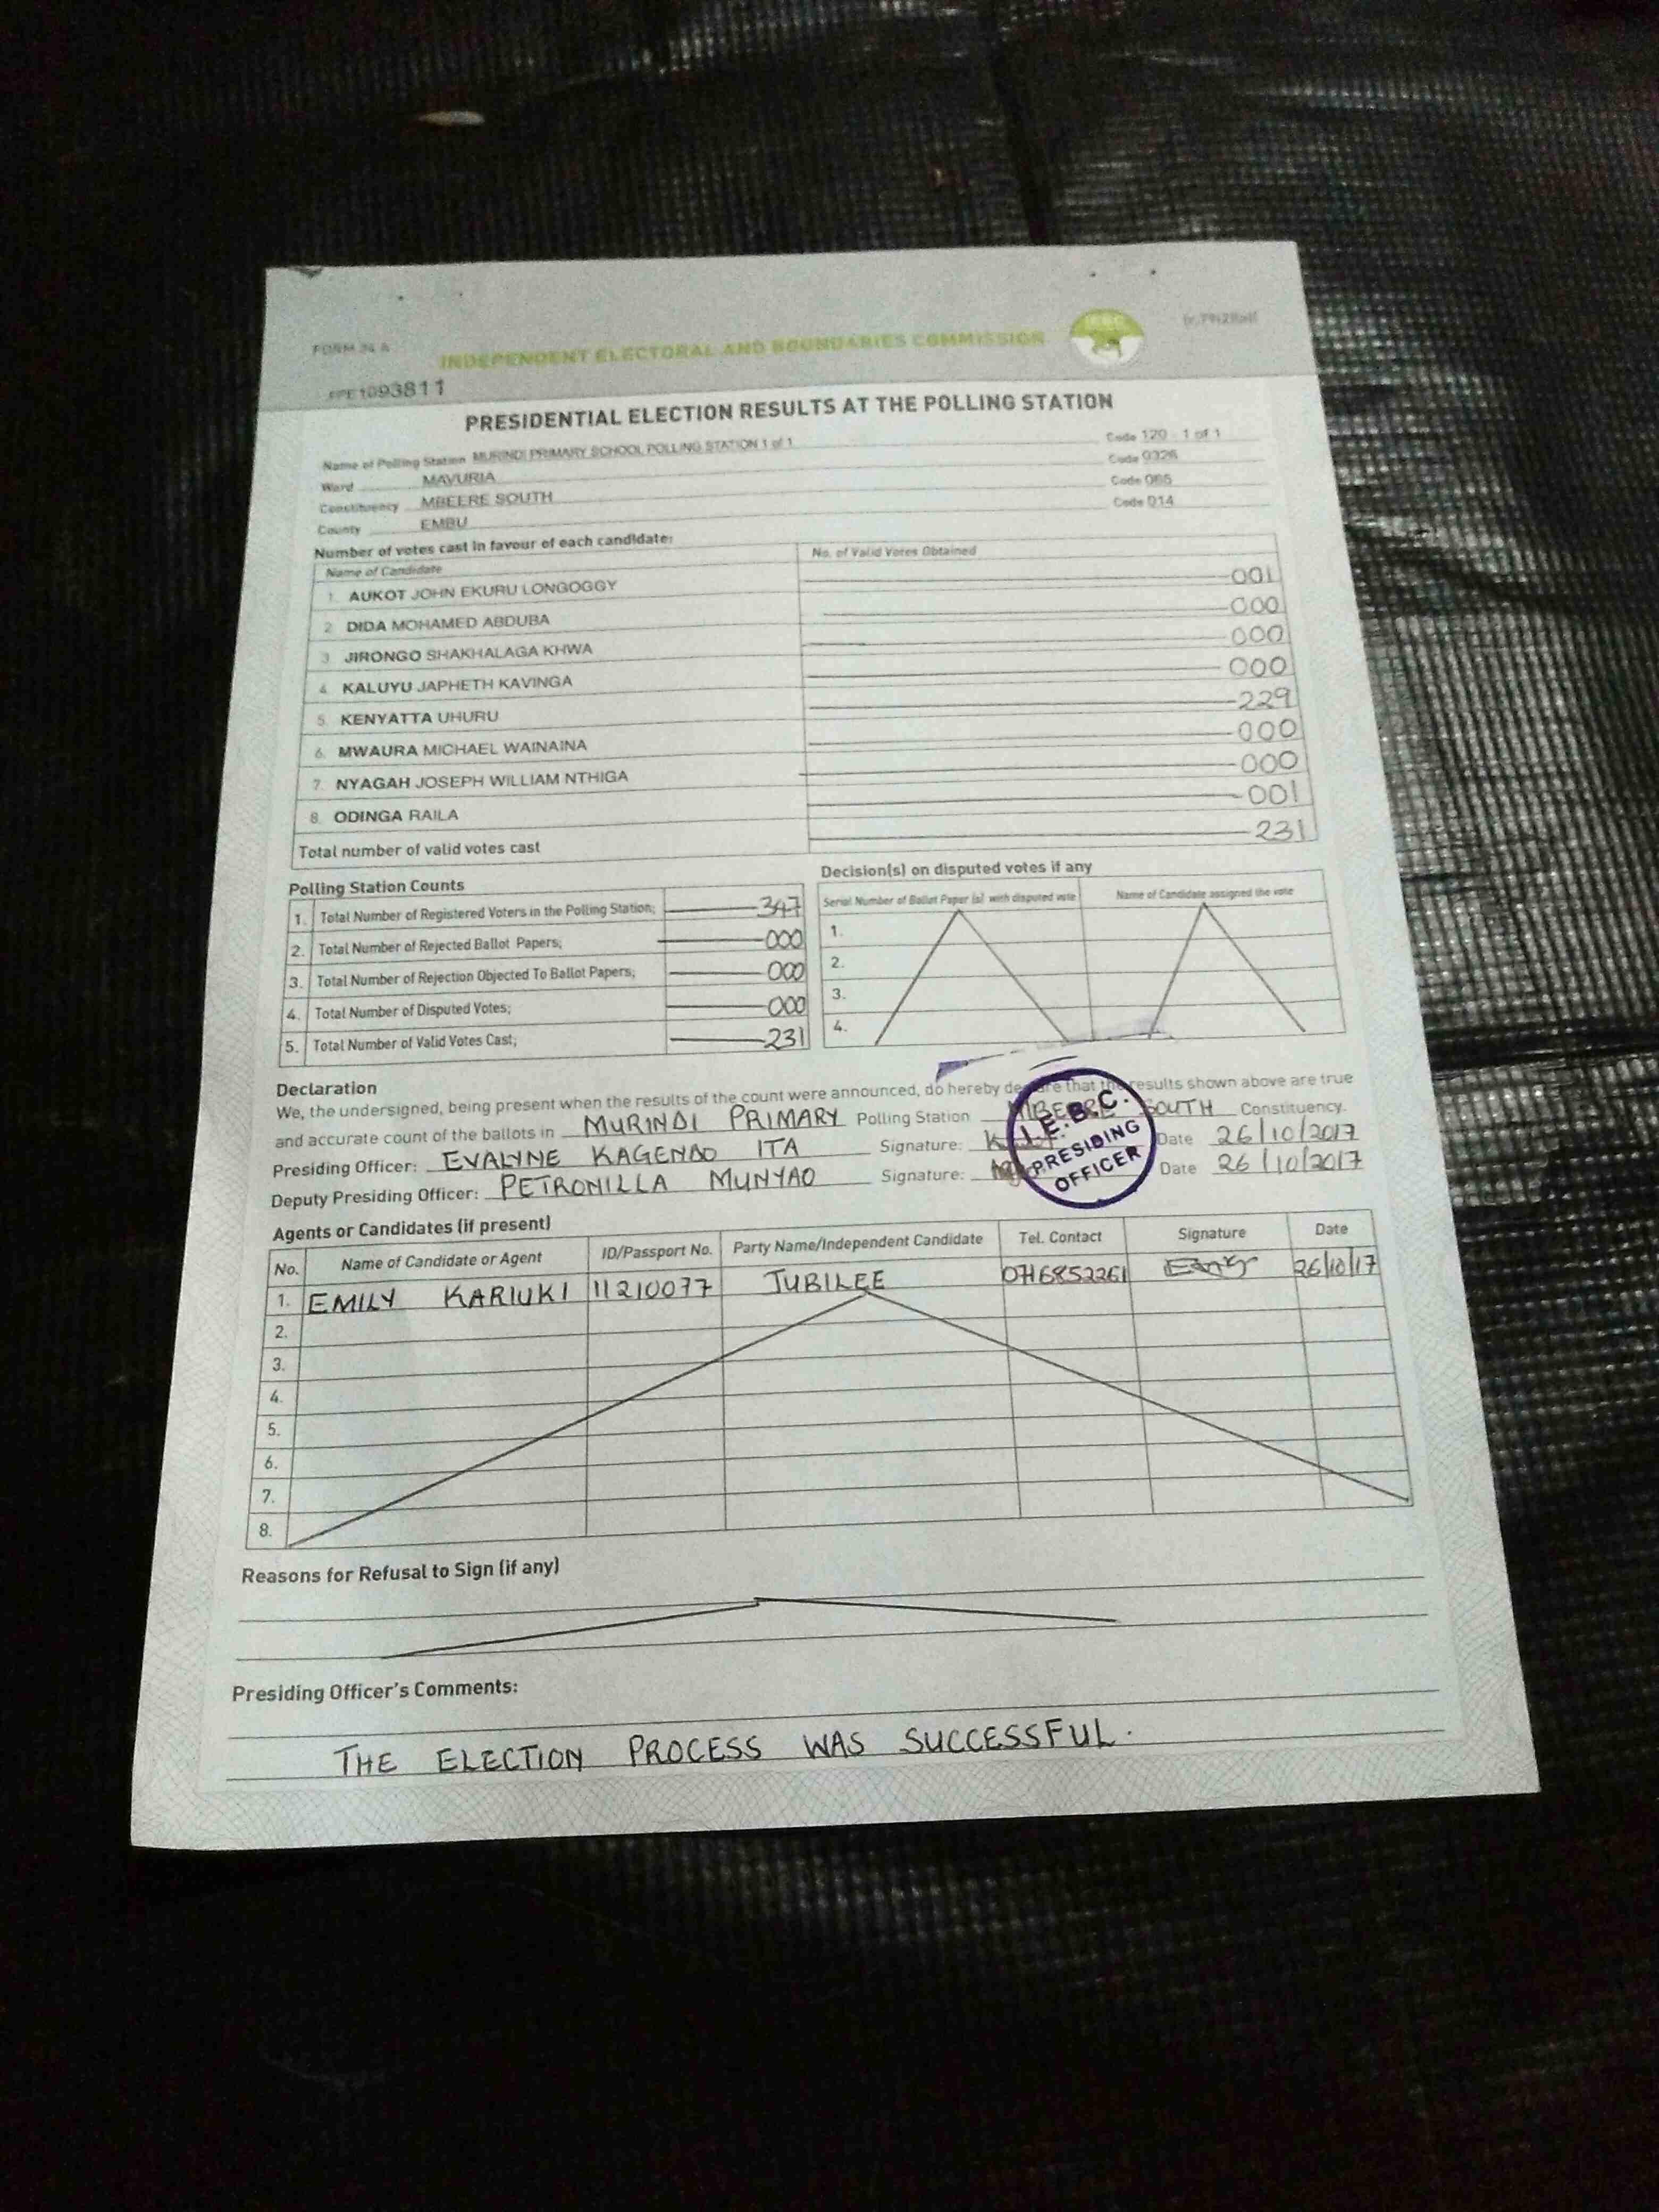 FORM 34 A
INDEPENDENT ELECTORAL AND BOUNDARIES COMMISSION
1093811
PRESIDENTIAL ELECTION RESULTS AT THE POLLING STATION
Name of Polling Station MURINDI PRIMARY SCHOOL POLLING STATION 1 of 1 Code 120 - 1 of 1
Ward MAVURIA Code 0326
Constituency MBEERE SOUTH Code 066
County EMBU Code 014
Number of votes cast in favour of each candidate:
Name of Candidate No. of Valid Votes Obtained
1. AUKOT JOHN EKURU LONGOGGY 001
2 DIDA MOHAMED ABDUBA 000
3 JIRONGO SHAKHALAGA KHWA 000
4 KALUYU JAPHETH KAVINGA 000
5. KENYATTA UHURU 229
6. MWAURA MICHAEL WAINAINA 000
7. NYAGAH JOSEPH WILLIAM NTHIGA 000
8. ODINGA RAILA 001
Total number of valid votes cast 231
Polling Station Counts
1. Total Number of Registered Voters in the Polling Station; 347
2. Total Number of Rejected Ballot Papers; 000
3. Total Number of Rejection Objected To Ballot Papers; 000
4. Total Number of Disputed Votes; 000
5. Total Number of Valid Votes Cast; 231
Decision(s) on disputed votes if any
Serial Number of Ballot Paper (s) with disputed vote Name of Candidate assigned the vote
1.
2.
3.
4.
Declaration
We, the undersigned, being present when the results of the count were announced, do hereby declare that the results shown above are true
and accurate count of the ballots in MURINDI PRIMARY Polling Station MBEERE SOUTH Constituency.
Presiding Officer: EVALYNE KAGENDO ITA Signature: Date 26/10/2017
Deputy Presiding Officer: PETRONILLA MUNYAO Signature: Date 26/10/2017
I.E.B.C.
PRESIDING
OFFICER
Agents or Candidates (if present)
No. Name of Candidate or Agent ID/Passport No. Party Name/Independent Candidate Tel. Contact Signature Date
1. EMILY KARIUKI 11210077 JUBILEE 0716852261 26/10/17
2.
3.
4.
5.
6.
7.
8.
Reasons for Refusal to Sign (if any)
Presiding Officer's Comments:
THE ELECTION PROCESS WAS SUCCESSFUL.